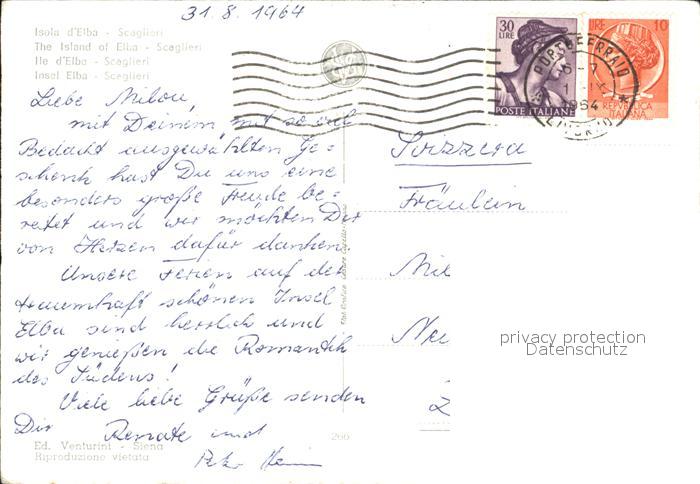 31.8.1964
Isola d'Elba - Scaglieri
The Island of Elba - Scaglieri
Ile d'Elba - Scaglieri
Insel Elba - Sceglieri
Liebe Milou,
mit Deinem, mit so viel
Bedacht ausgewählten Ge-
schenk hast Du uns eine
besonders große Freude be-
reitet und wir möchten Dir
von Herzen dafür danken.
Unsere Ferien auf der
traumhaft schönen Insel
Elba sind herrlich und
wir genießen die Romantik
des Südens!
Viele liebe Grüße senden
Dir Renate und
Peter
Ed. Venturini - Siena
Riproduzione vietata
260
30
LIRE
POSTE ITALIANE
LIRE 10
REPVBBLICA
ITALIANA
PORTOFERRAIO
1964
LIVORNO
Svizzera
Fräulein
Mil
Neu
Z
privacy protection
Datenschutz